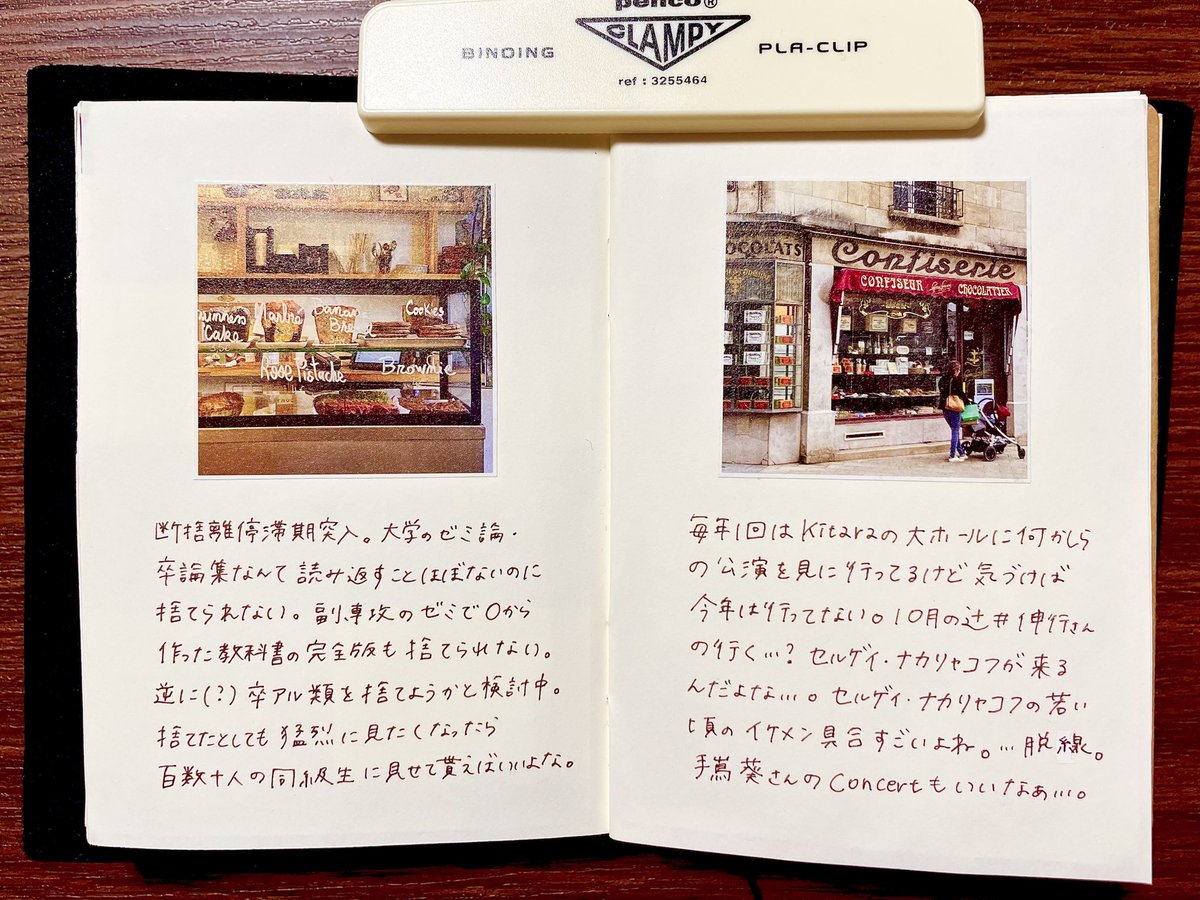 penco®
CLAMPY
BINDING
PLA-CLIP
ref : 3255464
Cake
Cookies
Rose Pistache
Brownie
断捨離停滞期突入。大学のゼミ論・
卒論集なんて読み返すことほぼないのに
捨てられない。副専攻のゼミで0から
作った教科書の完全版も捨てられない。
逆に(?)卒アル類を捨てようかと検討中。
捨てたとしても猛烈に見たくなったら
百数十人の同級生に見せて貰えばいいよな。
OCOLATS
Confiserie
CONFISEUR
CHOCOLATIER
毎年1回はKitaraの大ホールに何かしら
の公演を見に行ってるけど気づけば
今年は行ってない。10月の辻井伸行さん
の行く…?セルゲイ・ナカリャコフが来る
んだよな…。セルゲイ・ナカリャコフの若い
頃のイケメン具合すごいよね。…脱線。
手嶌葵さんのConcertもいいなぁ…。